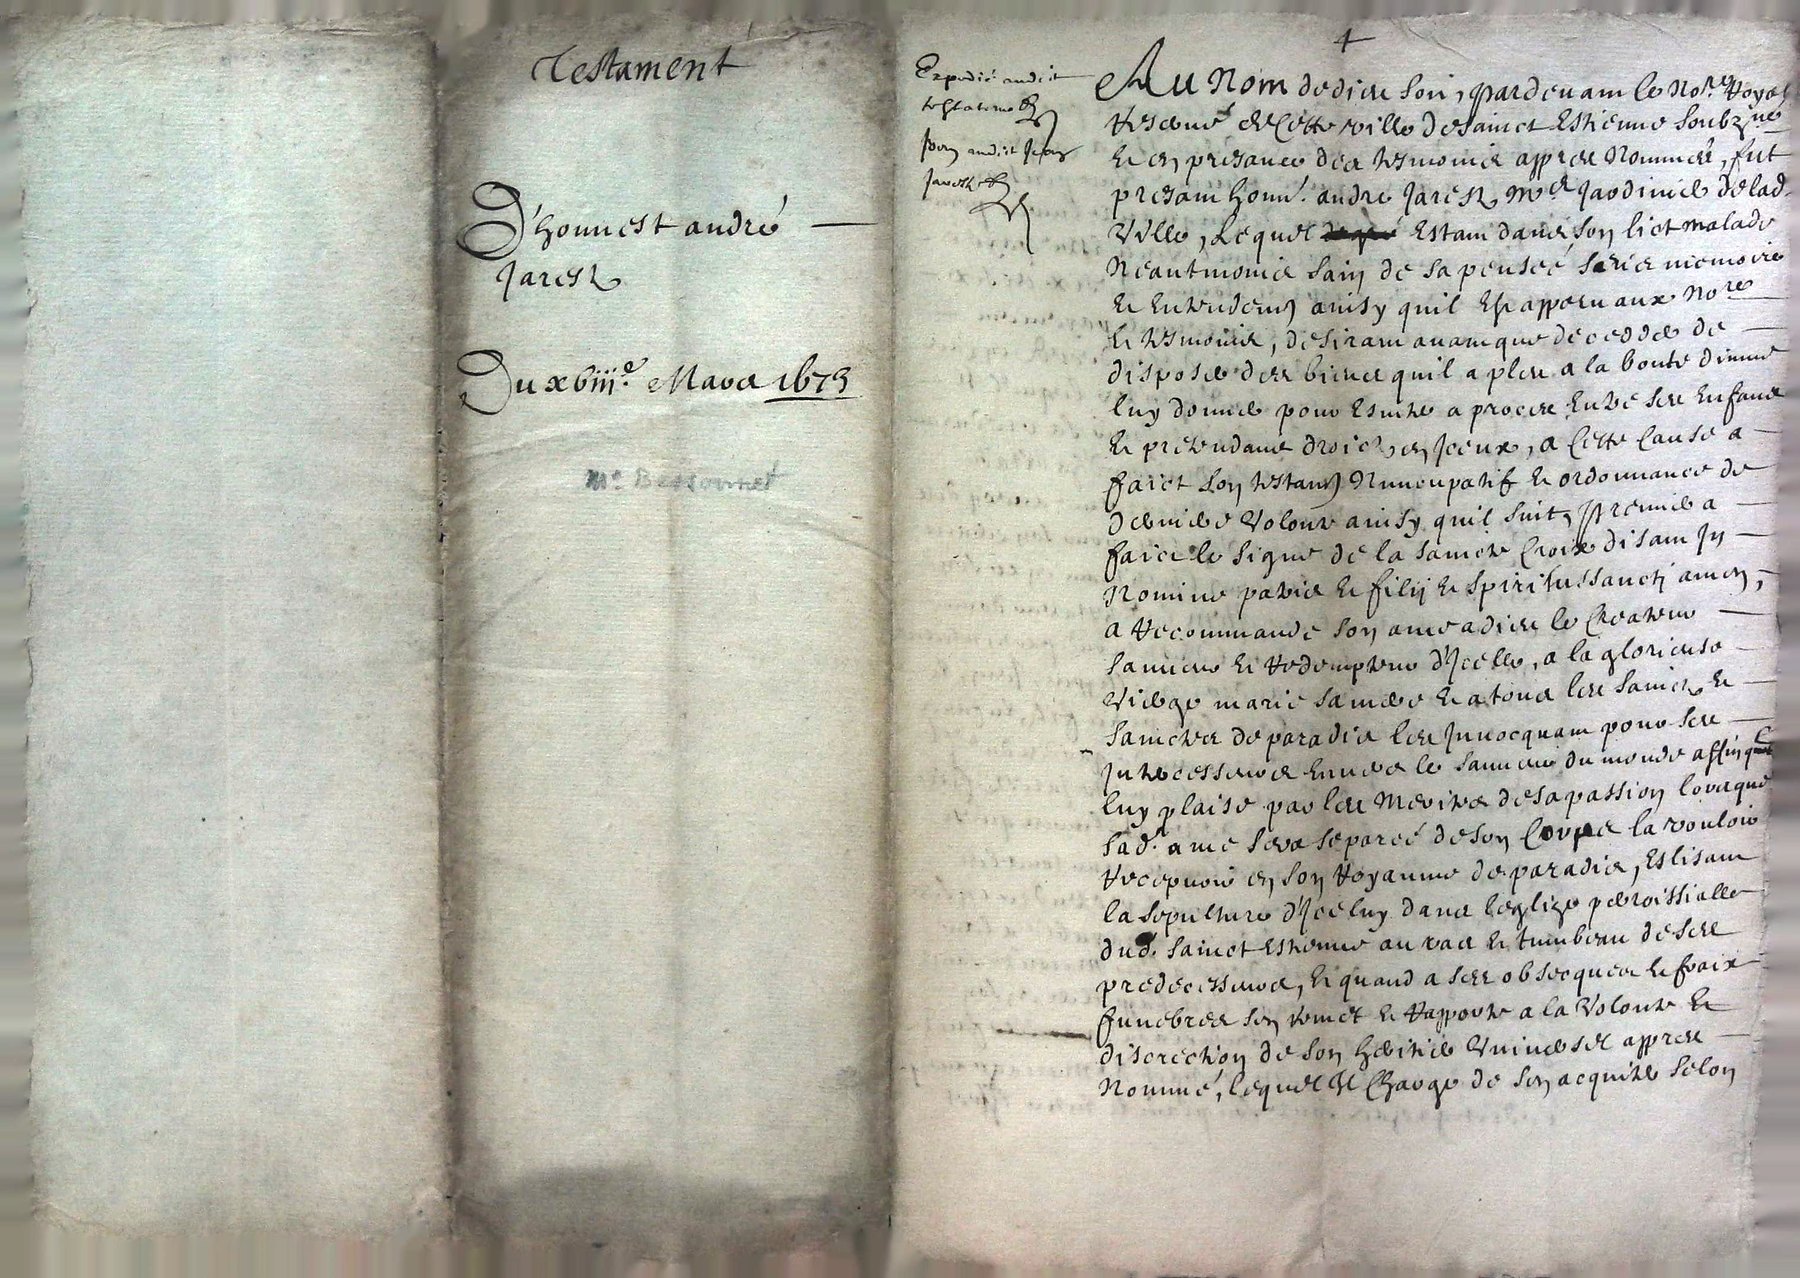 Testament
D'honnest andré
Jarest
Du xbiii.e Mars 1673
Me Bessonnet
Expedié audict
testateur
Jarest
Au Nom de dieu soit, Pardevant le Nore Royal
Reservé de Cette ville de sainct Estienne soubzné
Et en presance des tesmoins appres Nommés, fut
presant honn. andre Jarest Me Jardinier de lad.
Ville, Lequel Estant dans son lict malade
Neantmoins sain de sa pensée, sens memoire
Et Entendemt ainsy quil Est apparu aux Nore
Et tesmoins, desirant avant que deceder de
disposer des biens quil a pleu a la bonté divine
luy donner pour Esviter a proces Entre ses Enfans
Et pretendans droict en Jceux, a Cette Cause a
faict son testamt Nuncupatif Et ordonnance de
derniere Volonte ainsy quil suit, Premier a
faict le signe de la saincte Croix disant Jn
Nomine patris Et filij Et spiritus sancti amen,
a Recommandé son ame a dieu le Createur
sauveur Et Redempteur d'Jcelle, a la glorieuse
Vierge marie sa mere Et a tous les saincts Et
sainctes de paradis les Jnvocquant pour ses
Jntercesseurs Envers le sauveur du monde affin quil
luy plaise par les Merites de sa passion lorsque
sad. ame sera separée de son Corps la vouloir
Recepvoir en son Royaume de paradis, Eslisant
la sepulture d'Jceluy dans leglize parroissialle
dud. sainct Estienne au vas Et tumbeau de ses
predecesseurs, Et quand a ses obsecques Et fraix
funebres sen remet Et Rapporte a la Volonte Et
discretion de son heritier Vniversel appres
Nommé, lequel Il Charge de sen acquiter selon